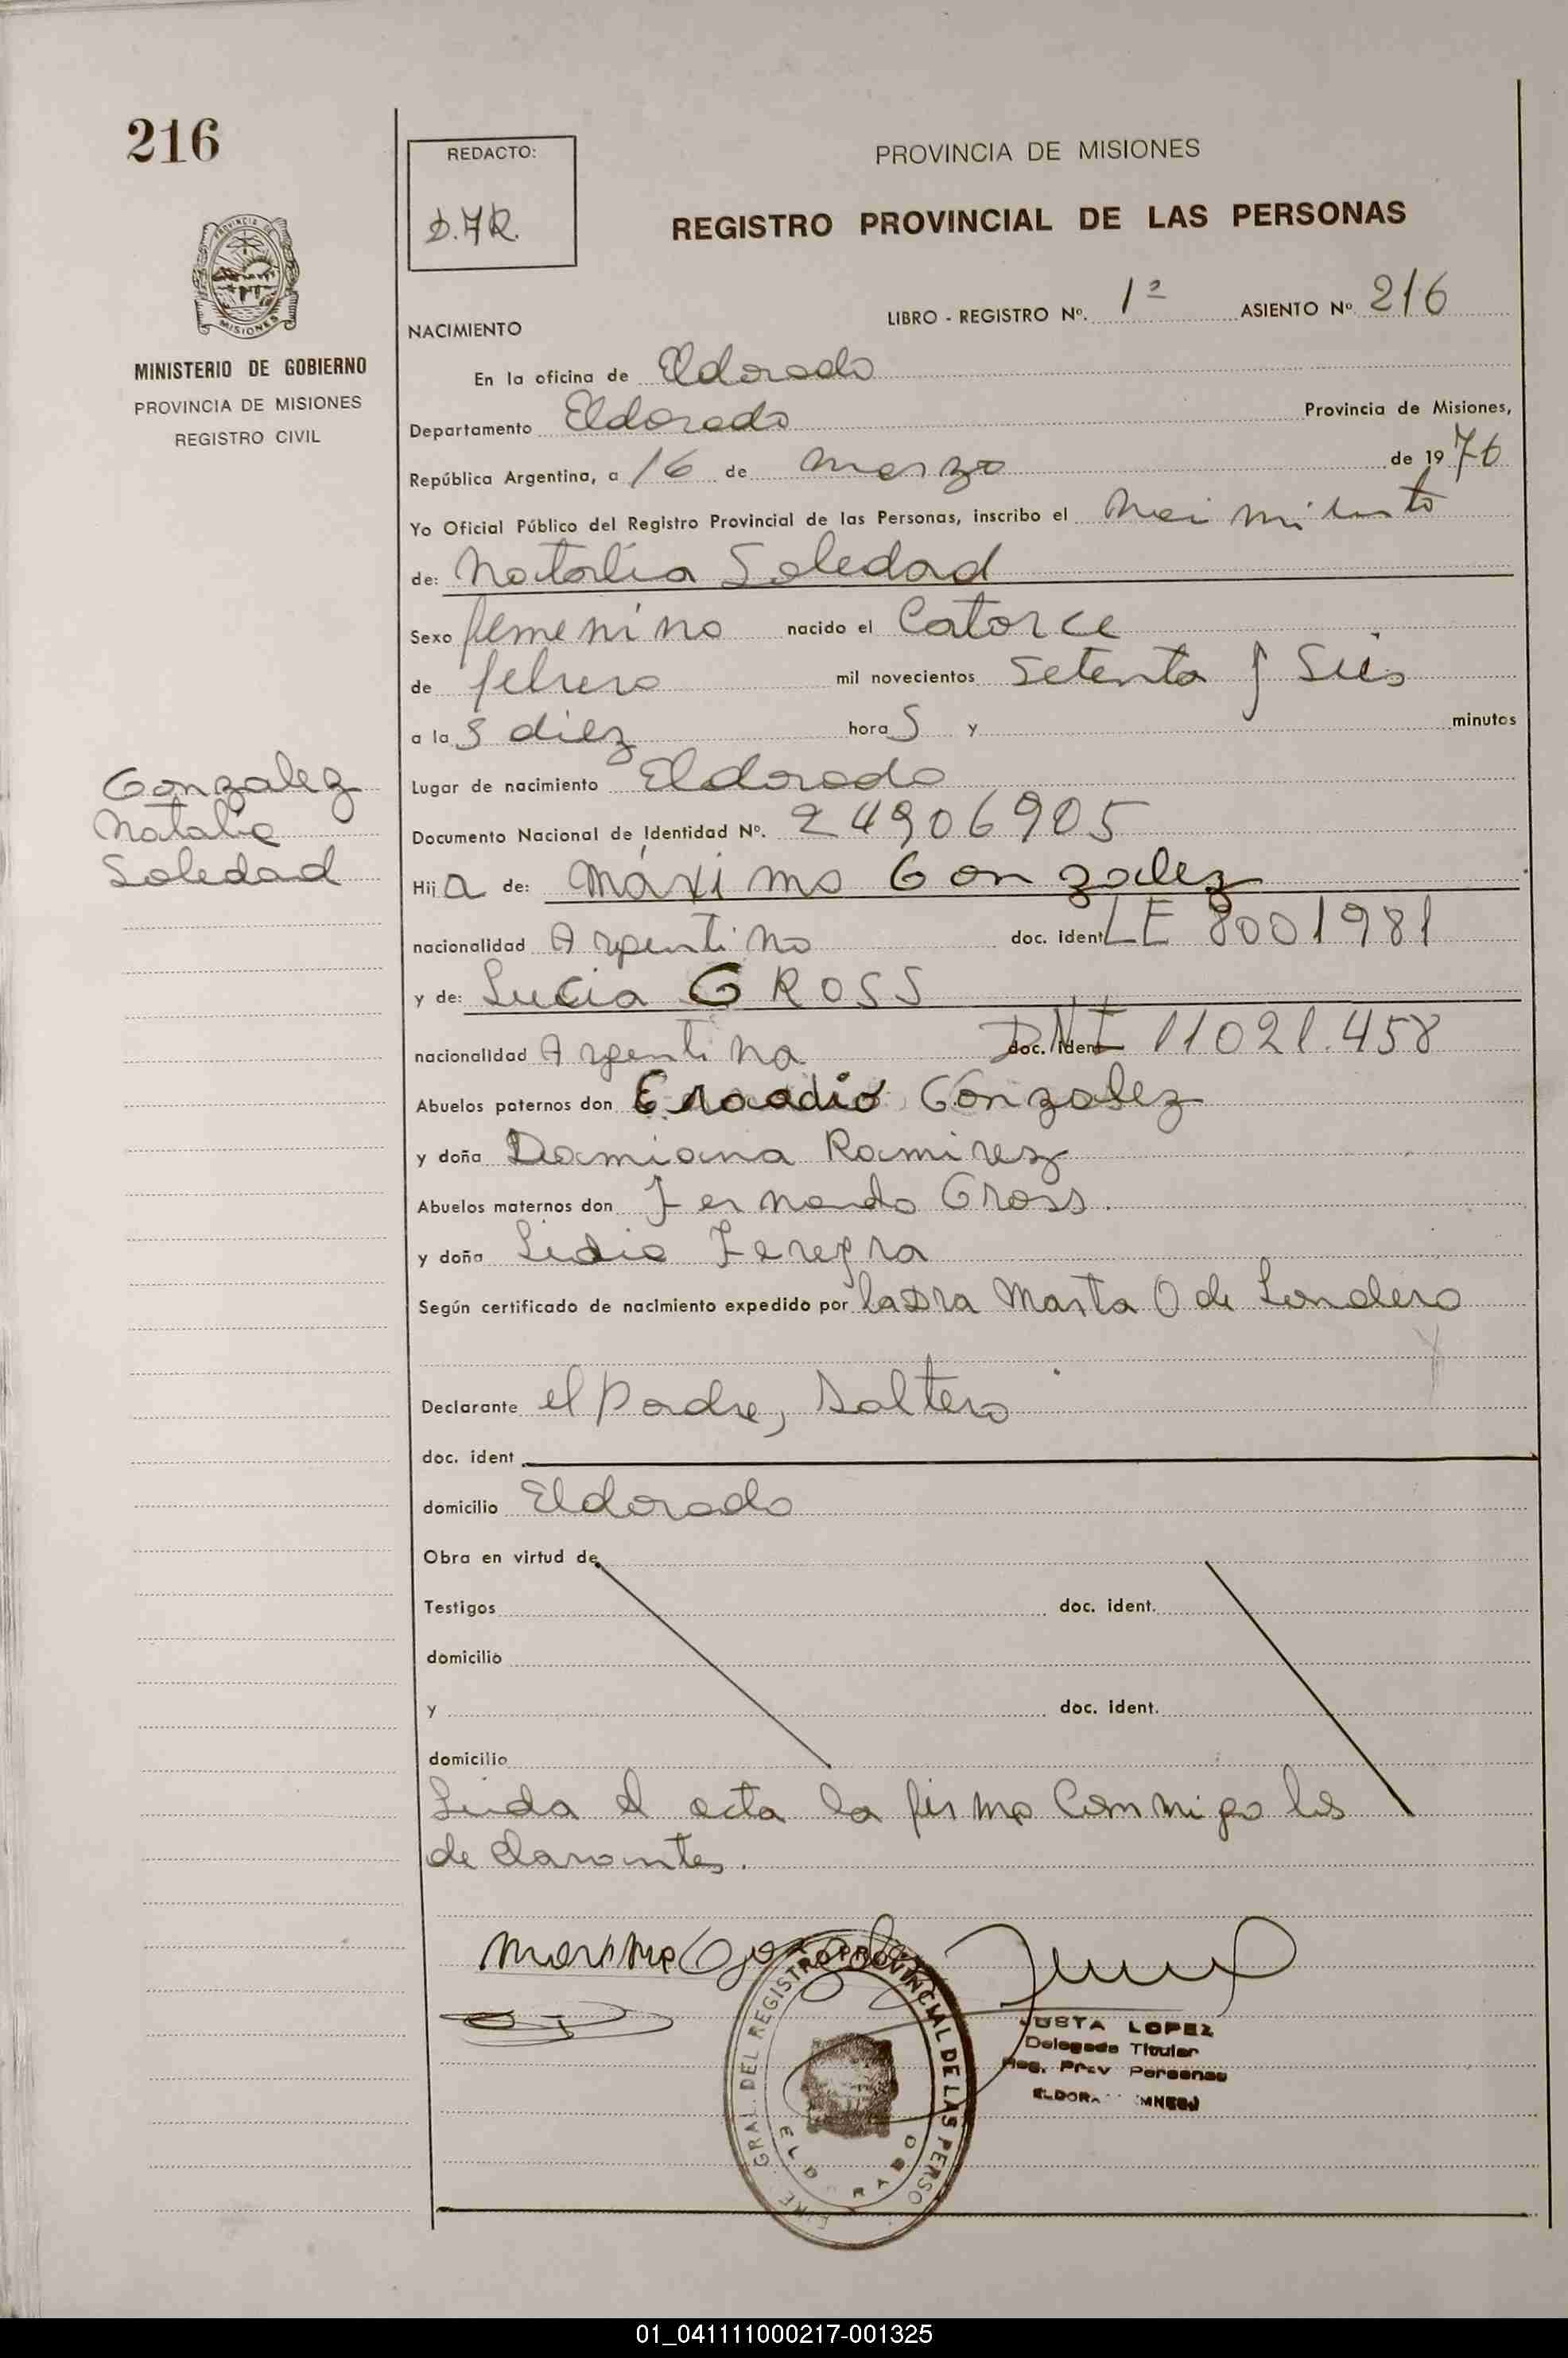 216
REDACTO:
PROVINCIA DE MISIONES
REGISTRO PROVINCIAL DE LAS PERSONAS
PROVINCIA DE
MISIONES
MINISTERIO DE GOBIERNO
PROVINCIA DE MISIONES
REGISTRO CIVIL
LIBRO - REGISTRO Nº. 1º ASIENTO Nº 216
NACIMIENTO
En la oficina de Eldorado
Departamento Eldorado Provincia de Misiones,
República Argentina, a 16 de marzo de 1976
Yo Oficial Público del Registro Provincial de las Personas, inscribo el nacimiento
de: Natalia Soledad
Sexo femenino nacido el Catorce
de febrero mil novecientos setenta y seis
a la s diez hora s y minutos
Gonzalez
Natalia
Soledad
Lugar de nacimiento Eldorado
Documento Nacional de Identidad Nº. 24906905
Hij a de: Máximo Gonzalez
nacionalidad Argentino doc. ident LE 8001981
y de: Lucia GROSS
nacionalidad Argentina doc. ident DNI 11021.458
Abuelos paternos don Gonzalez
y doña Damiana Ramirez
Abuelos maternos don Fernando Gross.
y doña Lidia
Según certificado de nacimiento expedido por la Dra Marta O de Londero
Declarante el Padre, Soltero
doc. ident
domicilio Eldorado
Obra en virtud de
Testigos doc. ident.
domicilio
y doc. ident.
domicilio
Leida el acta la firma Conmigo los
declarantes.
Maximo Gonzalez
GRAL. DEL REGISTRO PROVINCIAL DE LAS PERSO
ELD RADO
USTA LOPEZ
Delegada Titular
Reg. Prov Personas
ELDOR
01_041111000217-001325